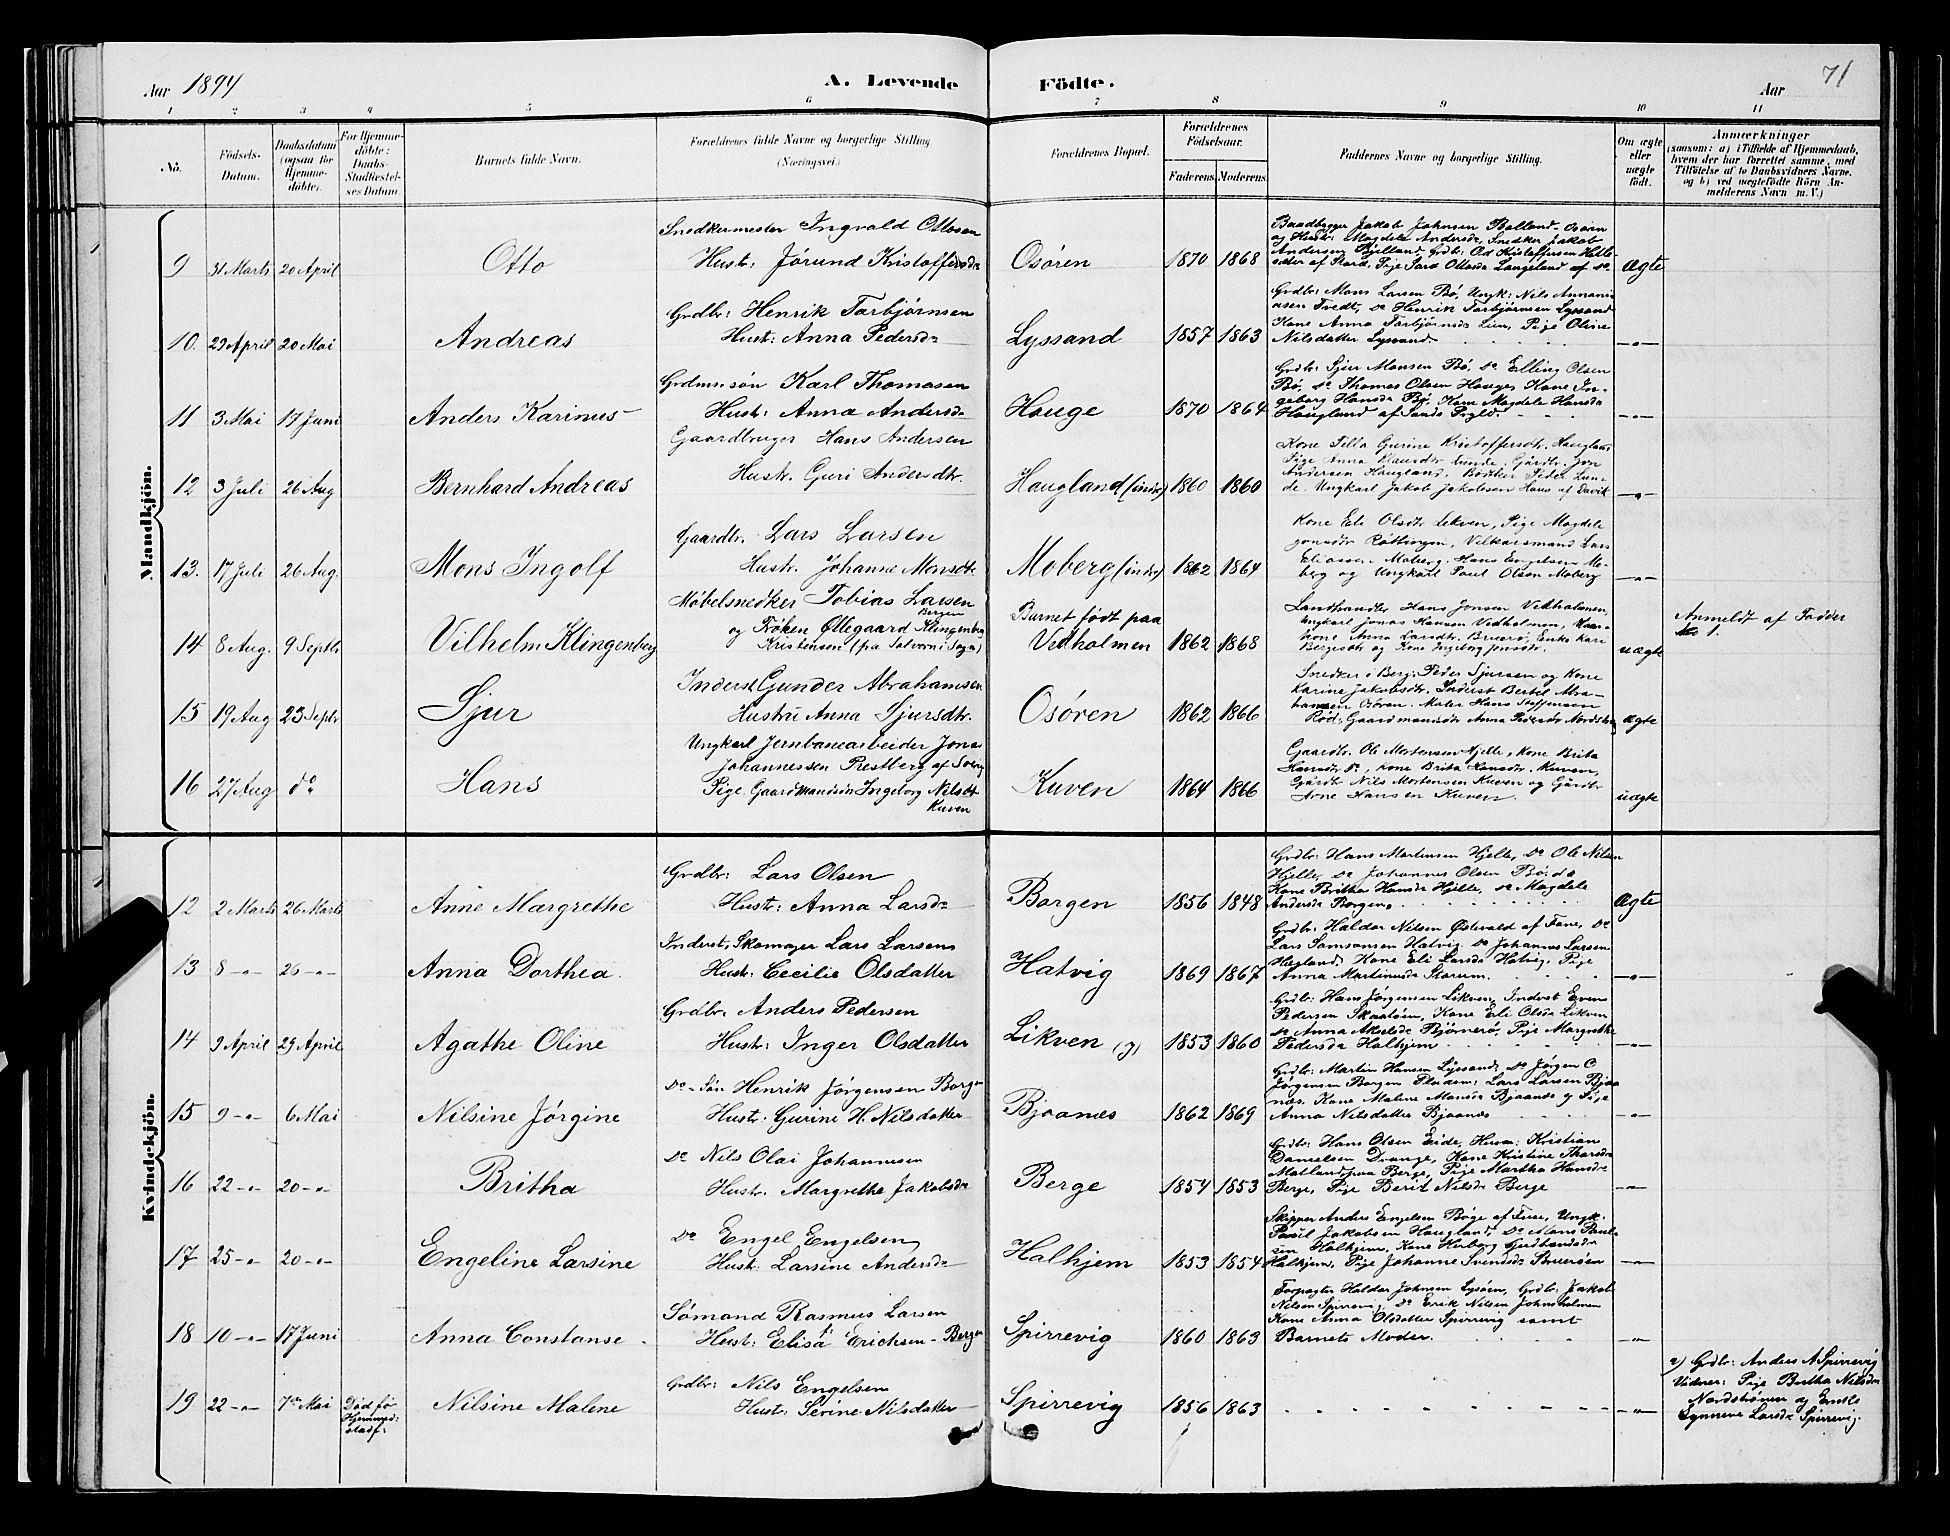 Aar 1894
A. Levende Födte.
Aar
71
1 2 3 4 5 6 7 8 9 10 11
No.
Födsels-Datum.
Daabsdatum (ogsaa for Hjemme-döbte).
For Hjemme-döbte: Daabs-Stadfæstel-ses Datum
Barnets fulde Navn.
Forældrenes fulde Navne og borgerlige Stilling (Næringsvei.)
Forældrenes Bopæl.
Forældrenes Födselsaar.
Faderens Moderens
Faddernes Navne og borgerlige Stilling.
Om ægte eller uægte födt.
Anmærkninger
(saasom: a) i Tilfælde af Hjemmedaab, hvem der har forrettet samme, med Tilföielse af to Daabsvidners Navne, og b) ved uægtefödte Börn An-melderens Navn m. V.)
Mandkjön.
Snedkermester Ingvald Ottosen
9 31 Marts 20 April Otto Hust: Jørund Kristoffersdr Osören 1870 1868 Ægte
Baadbygger Jakob Johnsen Osören
og Hustr: Magdela Andersdr, Snedker Jakob
Andersen Bjelland, Grdbr: Od Kristoffersen
af Stord, Pige Sara Ottosdr Langeland af do
Grdbr: Henrik Torbjørnsen
10. 29 April 20 Mai Andreas Hust: Anna Pedersdr Lyssand 1857 1863 -"-
Grdbr: Mons Larsen Bø, Ungk: Nils
Tvedt, do Henrik Torbjørnsen Lyssand
Kone Anna Torbjørnsdr Lien, Pige Oline
Nilsdatter Lyssand
Grdmnssøn Karl Thomasen
11 3 Mai 17 Juni Anders Karinus Hust: Anna Andersdr Hauge 1870 1864 -"-
Grdbr: Sjur Monsen Bø, do Elling Olsen
Bø, do Thomas Olsen Hauge, Kone In-
geborg Hansdr Bø, Kone Magdele Hansdr
Haugland af
Gaardbruger Hans Andersen
12 3 Juli 26 Aug Bernhard Andreas Hustr. Guri Andersdtr. Haugland (indr) 1860 1860 -"-
Kone Gurine Kristoffersdtr. Hauglan
Pige Anna Lunde. Gårdbr. Jon
Andersen Haugland. Bödker Peder Lun-
de. Ungkarl Jakob Jakobsen
Gaardbr. Lars Larsen
13. 17 Juli 26 Aug. Mons Ingolf Hustr. Johanne Monsdtr Moberg (indr) 1862 1864 -"-
Kone Eli Olsdtr Lekven, Pige Magdele
Røttingen, Vilkarsmand Lars
Eliassen Moberg. Hans Engelsen Mo-
berg og Ungkarl Paul Olsen Moberg
Møbelsnedker Tobias Larsen
Bergen
14 8 Aug. 9 Septbr Vilhelm Klingenberg og Frøken Øllegaard Klingenberg
Kristensen (fra Solvorn i Sogn)
Barnet født paa Vedholmen 1862 1868 uægte
Landhandler Hans Jonsen Vedholmen,
Ungkarl Jonas Hansen Vedholmen,
Kone Anna Larsdtr. Bruerø, Enke Kari
og Kone Ingeborg Jonsdtr.
Anmeldt af Fadder
No 1.
Inderst Gunder Abrahamsen
15 19 Aug 23 Septbr Sjur Hustru Anna Sjursdtr. Osören 1862 1866 ægte
Snedker i Berg. Peder Sjursen og Kone
Karine Jakobsdtr. Inderst Bertil Abra-
hamsen Osören. Maler Hans Steffensen
Rød. Gaardmandsdtr Anna Pedersdtr
Ungkarl Jernbanearbeider Jonas
Johannessen Prestberg af
16 27 Aug do Hans Pige Gaardmandsdtr Ingeborg Nilsdtr
Kuven
Kuven 1864 1866 uægte
Gaardbr. Ole Mortensen Hjelle, Kone Brita
Hansdtr do, Kone Brita Hansdtr. Kuven,
Gårdbr Nils Mortensen Kuven og Gårdbr
Arne Hansen Kuven.
Kvindekjön.
Grdbr: Lars Olsen
12 2 Marts 26 Marts Anne Margrethe Hust: Anna Larsdr Borgen 1856 1848 Ægte
Grdbr: Hans Martensen Hjelle, do Ole Nilsen
Hjelle, do Johannes Olsen
Kone Britha Hansdr Hjelle, do Magdele
Andersdr Borgen.
Inderst, Skomager Lars Larsen
13 8 -"- 26 -"- Anna Dorthea. Hust: Cecilie Olsdatter Hatvig 1869 1867 -"-
Grdbr: Haldor Nilsen Østvold af Fane, do
Lars Samsonsen Hatvig, do Johannes Larsen
Hegland, Kone Eli Larsdr Hatvig, Pige
Anna Martinusdr Storum.
Grdbr: Anders Pedersen
14 9 April 29 April Agathe Oline Hust: Inger Olsdatter Likven (J) 1853 1860 -"-
Grdbr: Hans Jørgensen Likven, Inderst Even
Pedersen Kone Eli Olsdr Likven
do Anna Akselsdr Bjørnerø, Pige Margrethe
Pedersdr Halhjem
Do-Søn Henrik Jørgensen Borgen
15 9 -"- 6 Mai Nilsine Jørgine Hust: Gurine H. Nilsdatter Bjoanes 1862 1869 -"-
Grdbr: Martin Hansen Lyssand, do Jørgen C
Jørgensen Borgen Pladsm: Lars Larsen Bjoa
nes, Kone Malene Monsdr Bjoanes og Pige
Anna Nilsdatter Bjoanes
Do Nils Olai Johannesen
16 22 -"- 20 -"- Britha Hust. Margrethe Jakobsdr Berge 1854 1853 -"-
Grdbr: Hans Olsen Eide, Husm: Kristian
Danielsen Drange, Kone Kristine Thorsdr
Matland paa Berge, Pige Martha Hansdr
Berge, Pige Berit Nilsdr Berge
Do Engel Engelsen
17 25 -"- 20 -"- Engeline Larsine Hust: Larsine Andersdr Halhjem 1853 1854 -"-
Skipper Anders Engelsen Bøge af Fuse, Ungk.
Poul Jakobsen Haugland, Do Mons Poul-
sen Halhjem, Kone Herborg
Halhjem, Pige Johanne Svendsdr Bruerøen
Sømand Rasmus Larsen
18 10 -"- 17 Juni Anna Constanse Hust: Elisa Erichsen - Bergen Spirrevig 1860 1863 -"-
Forpagter Haldor Johnsen Lysøen, Grdbr: Jakob
Nilsen Spirrevig, Do Erik Nilsen
Kone Anna Olsdatter Spirrevig samt
Barnets Moder.
Grdbr: Nils Engelsen
19 22 -"- 7de Mai Død før Hjemmed: stadf: Nilsine Malene Hust: Serine Nilsdatter Spirrevig 1856 1863 -"-
a) Grdbr: Anders A Spirrevig
Vidner: Pige Britha Nilsdr
og Enke
Synneve Larsdr Spirrevig.